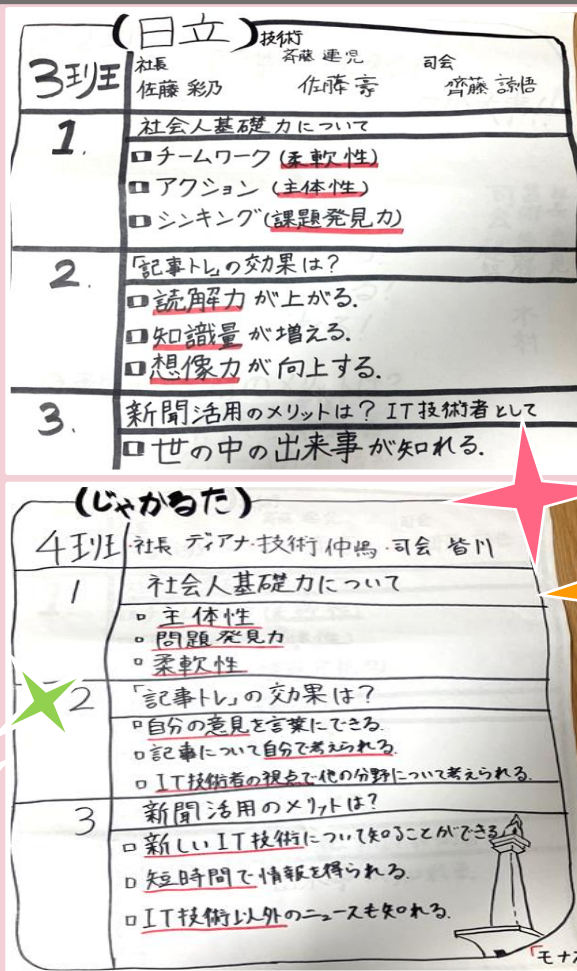 (日立)
技術
3班
社長
斉藤 連児
司会
佐藤 彩乃
佐藤 豪
齊藤 諒悟
1.
社会人基礎力について
□チームワーク(柔軟性)
□アクション(主体性)
□シンキング(課題発見力)
2.
「記事トレ」の効果は?
□読解力が上がる.
□知識量が増える.
□想像力が向上する.
3.
新聞活用のメリットは? IT技術者として
□世の中の出来事が知れる.
(じゃかるた)
4班
・社長 ディアナ・技術 仲嶋・司会 皆川
1
社会人基礎力について
□主体性
□問題発見力
□柔軟性
2
「記事トレ」の効果は?
□自分の意見を言葉にできる.
□記事について自分で考えられる.
□IT技術者の視点で他の分野について考えられる.
3
新聞活用のメリットは?
□新しいIT技術について知ることができる
□短時間で情報を得られる.
□IT技術以外のニュースも知れる.
「モナ